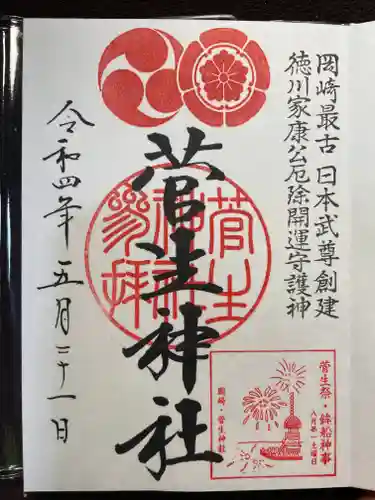 岡崎最古 日本武尊創建
徳川家康公厄除開運守護神
菅生神社
令和四年五月二十一日
菅生祭・鉾船神事
八月第一土曜日
岡崎・菅生神社